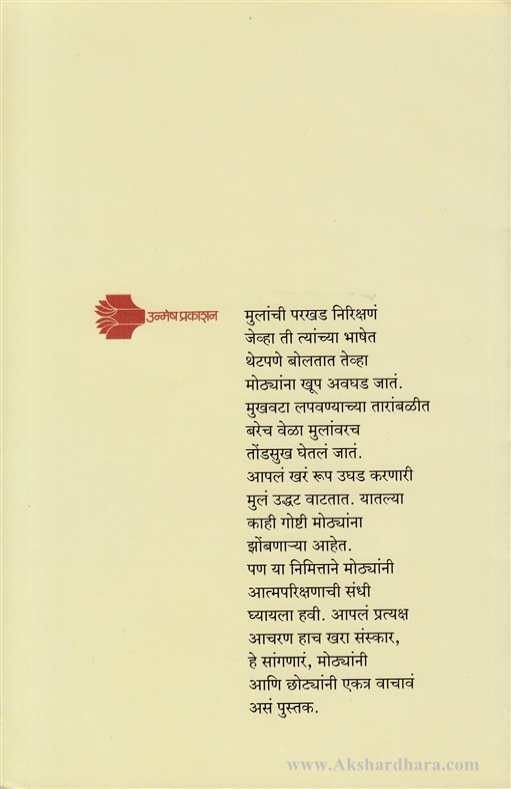 उन्मेष प्रकाशन
मुलांची परखड निरिक्षणं
जेव्हा ती त्यांच्या भाषेत
थेटपणे बोलतात तेव्हा
मोठ्यांना खूप अवघड जातं.
मुखवटा लपवण्याच्या तारांबळीत
बरेच वेळा मुलांवरच
तोंडसुख घेतलं जातं.
आपलं खरं रूप उघड करणारी
मुलं उद्धट वाटतात. यातल्या
काही गोष्टी मोठ्यांना
झोंबणाऱ्या आहेत.
पण या निमित्ताने मोठ्यांनी
आत्मपरिक्षणाची संधी
घ्यायला हवी. आपलं प्रत्यक्ष
आचरण हाच खरा संस्कार,
हे सांगणारं, मोठ्यांनी
आणि छोट्यांनी एकत्र वाचावं
असं पुस्तक.
www.Akshardhara.com